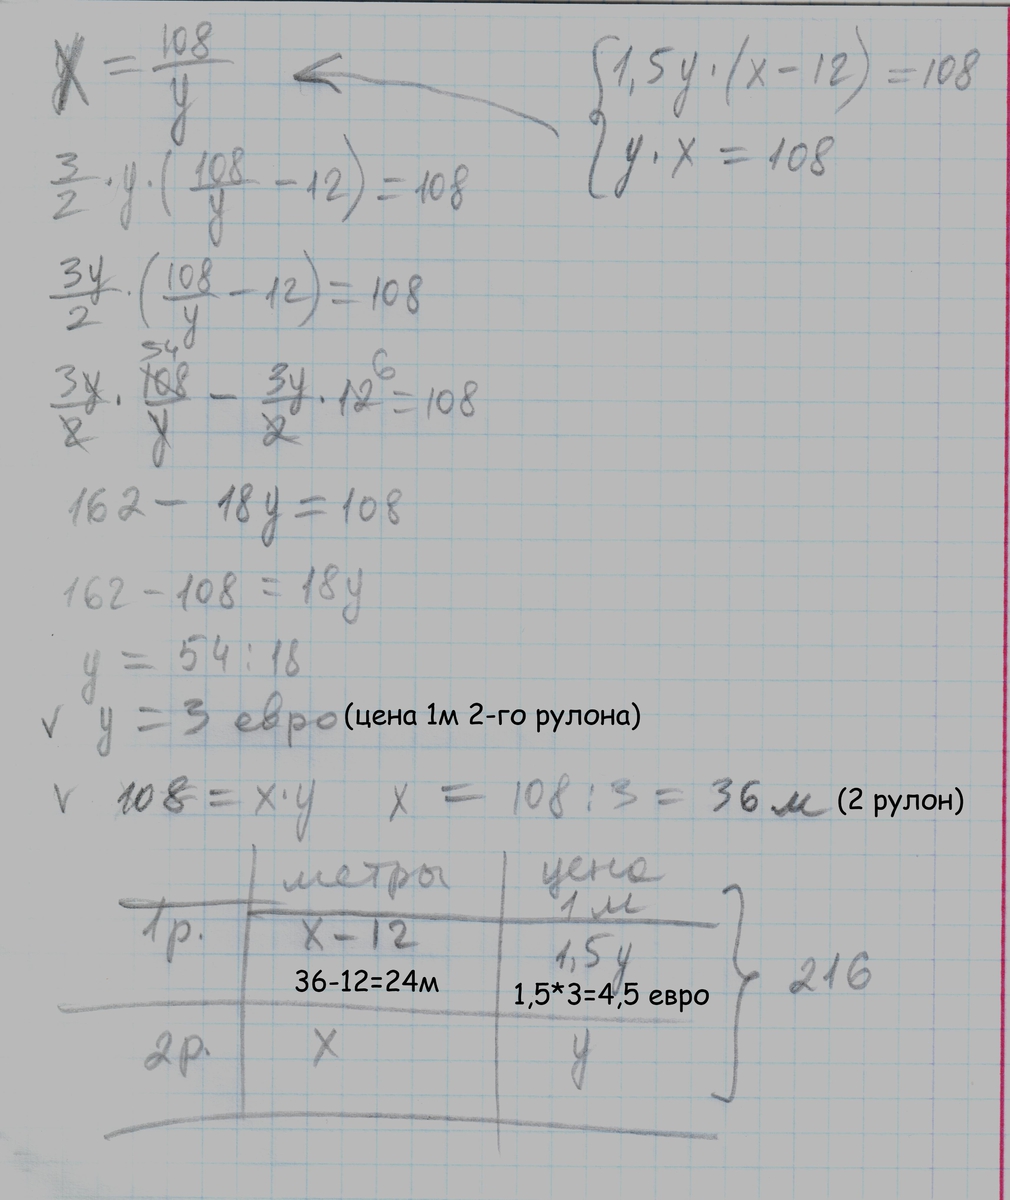 x = 108/y
{ 1,5y · (x − 12) = 108
y · x = 108
3/2 · y · (108/y − 12) = 108
3y/2 · (108/y − 12) = 108
54 6
3y/2 · 108/y − 3y/2 · 12 = 108
162 − 18y = 108
162 − 108 = 18y
y = 54 : 18
v y = 3 евро (цена 1м 2-го рулона)
v 108 = x·y x = 108 : 3 = 36 м (2 рулон)
метры цена
1 м
1р. x − 12 1,5y
36-12=24м 1,5*3=4,5 евро } 216
2р. x y